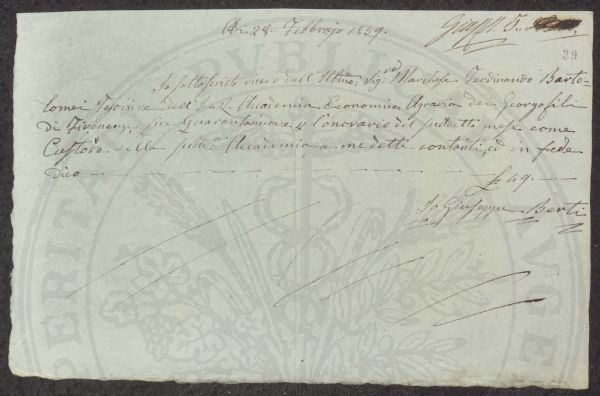 Adi 28. Febbrajo 1859.
29
Io sottoscritto ricevo dall' Illmo: Sigre Marchese Ferdinando Barto-
lomei Tesoriere dell' I. e R. Accademia Economico Agraria dei Georgofili
di Firenze, Lire Quarantanove p l'onorario del suddetto mese come
Custode della sudda: Accademia a me dette contanti, ed in fede
dico
£ 49.
Io Giuseppe Berti